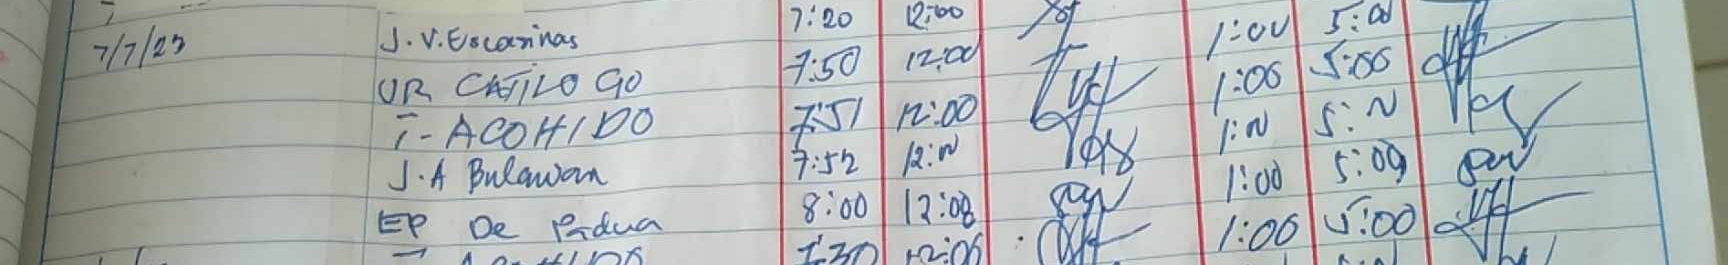 7/7/23 J.V. Escarinas 7:20 12:00 1:00 5:00
UR CATILOGO 7:50 12:00 1:00 5:00
T-ACOHIDO 7:51 12:00 1:N 5:N
J.A Bulawan 7:52 12:N 1:00 5:00
EP De Padua 8:00 12:00 1:00 5:00
7:30 12:00